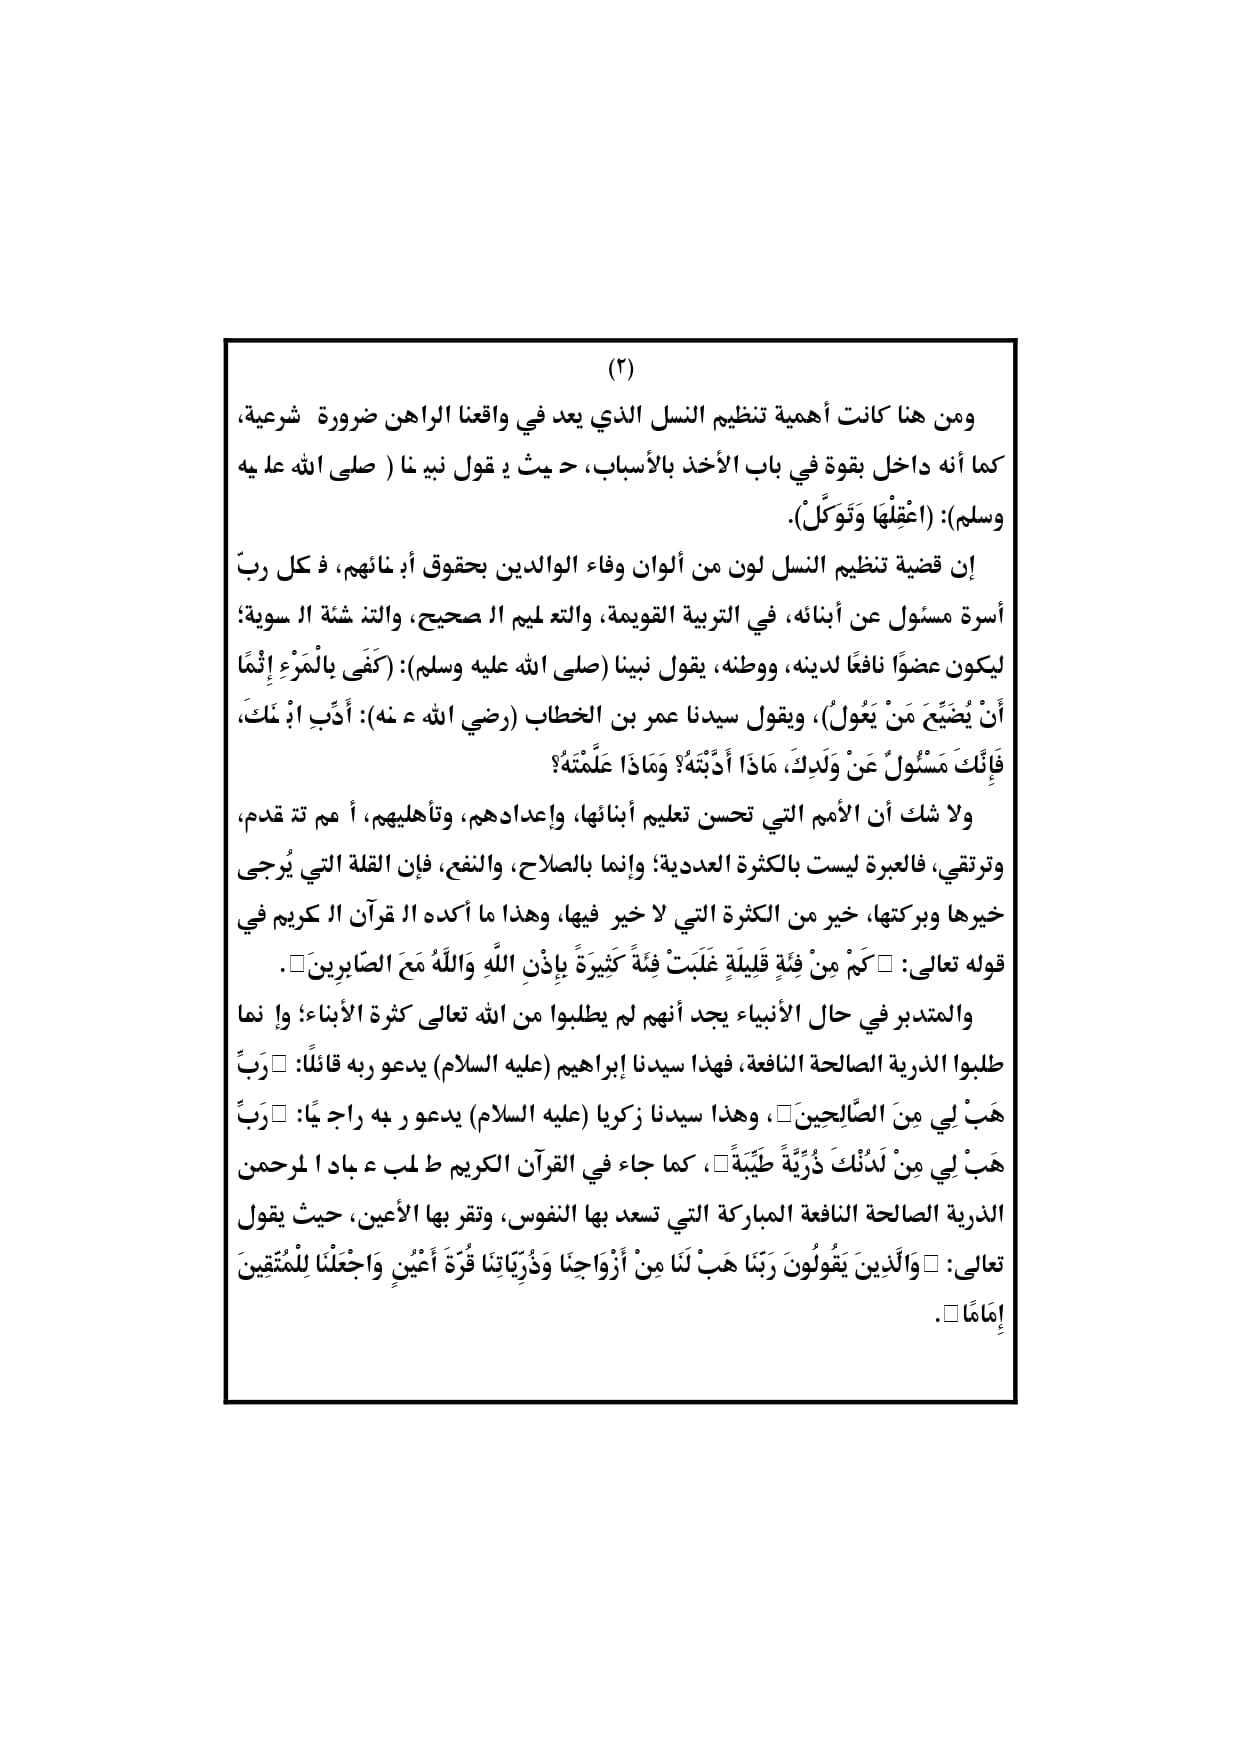 (٢)
ومن هنا كانت أهمية تنظيم النسل الذي يعد في واقعنا الراهن ضرورة شرعية،
كما أنه داخل بقوة في باب الأخذ بالأسباب، حيث يقول نبينا (صلى الله عليه
وسلم): (اعْقِلْهَا وَتَوَكَّلْ).
إن قضية تنظيم النسل لون من ألوان وفاء الوالدين بحقوق أبنائهم، فكل ربّ
أسرة مسئول عن أبنائه، في التربية القويمة، والتعليم الصحيح، والتنشئة السوية؛
ليكون عضوًا نافعًا لدينه، ووطنه، يقول نبينا (صلى الله عليه وسلم): (كَفَى بِالْمَرْءِ إِثْمًا
أَنْ يُضَيِّعَ مَنْ يَعُولُ)، ويقول سيدنا عمر بن الخطاب (رضي الله عنه): أَدِّبِ ابْنَكَ،
فَإِنَّكَ مَسْئُولٌ عَنْ وَلَدِكَ، مَاذَا أَدَّبْتَهُ؟ وَمَاذَا عَلَّمْتَهُ؟
ولا شك أن الأمم التي تحسن تعليم أبنائها، وإعدادهم، وتأهليهم، أمم تتقدم،
وترتقي، فالعبرة ليست بالكثرة العددية؛ وإنما بالصلاح، والنفع، فإن القلة التي يُرجى
خيرها وبركتها، خير من الكثرة التي لا خير فيها، وهذا ما أكده القرآن الكريم في
قوله تعالى: □كَمْ مِنْ فِئَةٍ قَلِيلَةٍ غَلَبَتْ فِئَةً كَثِيرَةً بِإِذْنِ اللَّهِ وَاللَّهُ مَعَ الصّابِرِينَ□.
والمتدبر في حال الأنبياء يجد أنهم لم يطلبوا من الله تعالى كثرة الأبناء؛ وإنما
طلبوا الذرية الصالحة النافعة، فهذا سيدنا إبراهيم (عليه السلام) يدعو ربه قائلًا: □رَبِّ
هَبْ لِي مِنَ الصَّالِحِينَ□، وهذا سيدنا زكريا (عليه السلام) يدعو ربه راجيًا: □رَبِّ
هَبْ لِي مِنْ لَدُنْكَ ذُرِّيَّةً طَيِّبَةً□، كما جاء في القرآن الكريم طلب عباد الرحمن
الذرية الصالحة النافعة المباركة التي تسعد بها النفوس، وتقر بها الأعين، حيث يقول
تعالى: □وَالَّذِينَ يَقُولُونَ رَبّنَا هَبْ لَنَا مِنْ أَزْوَاجِنَا وَذُرِّيّاتِنَا قُرّةَ أَعْيُنٍ وَاجْعَلْنَا لِلْمُتّقِينَ
إِمَامًا□.